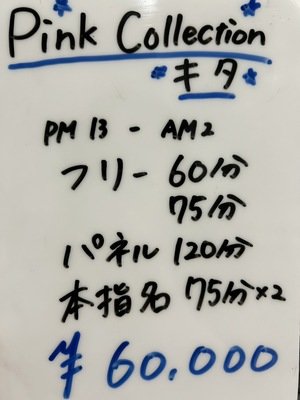 Pink Collection
キタ
PM 13 - AM2
フリー 60分
75分
パネル 120分
本指名 75分×2
¥60.000